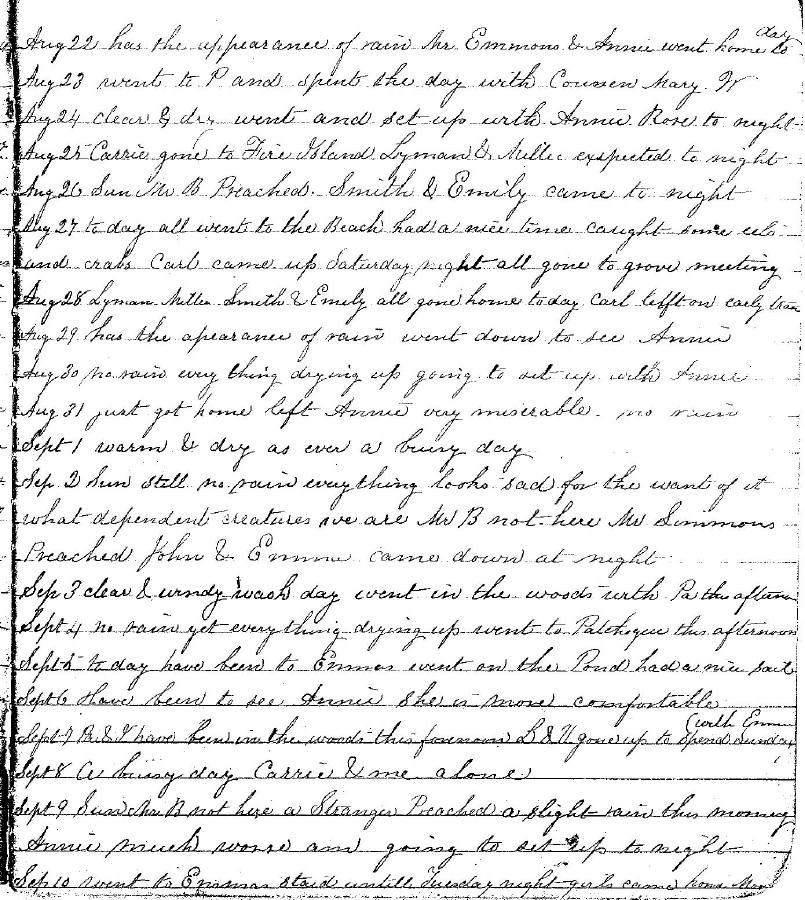 day
Aug 22 has the appearance of rain Mr Emmons & Annie went home to
Aug 23 went to P and spent the day with Coussen Mary W
Aug 24 clear & dry went and set up with Annie Rose to night
Aug 25 Carrie gone to Fire Island Lyman & Millee exspected to night
Aug 26 Sun Mr B Preached. Smith & Emily came to night
Aug 27 to day all went to the Beach had a nice time caught some eels
and crabs Carl came up Saturday night all gone to grove meeting
Aug 28 Lyman Millee Smith & Emily all gone home today Carl lefft on early train
Aug 29 has the apearance of rain went down to see Annie
Aug 30 no rain every thing drying up going to set up with Annie
Aug 31 just got home left Annie very miserable. no rain
Sept 1 warm & dry as ever a busy day
Sep 2 Sun still no rain everything looks sad for the want of it
what dependent creatures we are Mr B not here Mr Simmons
Preached John & Emma came down at night
Sep 3 clear & windy wash day went in the woods with Pa this afternoon
Sept 4 no rain yet everything drying up went to Patchogue this afternoon
Sept 5 to day have been to Emmas went on the Pond had a nice sail
Sept 6 Have been to see Annie she is more comfortable
(with Emma
Sept 7 Pa & I have been in the woods this forenoon L & H gone up to spend Sunday
Sept 8 A busy day Carrie & me alone
Sept 9 Sun Mr B not here a Stranger Preached a slight rain this morning
Annie much worse am going to set up to night
Sep 10 went to Emmas staid untill Tuesday night girls came home Mon